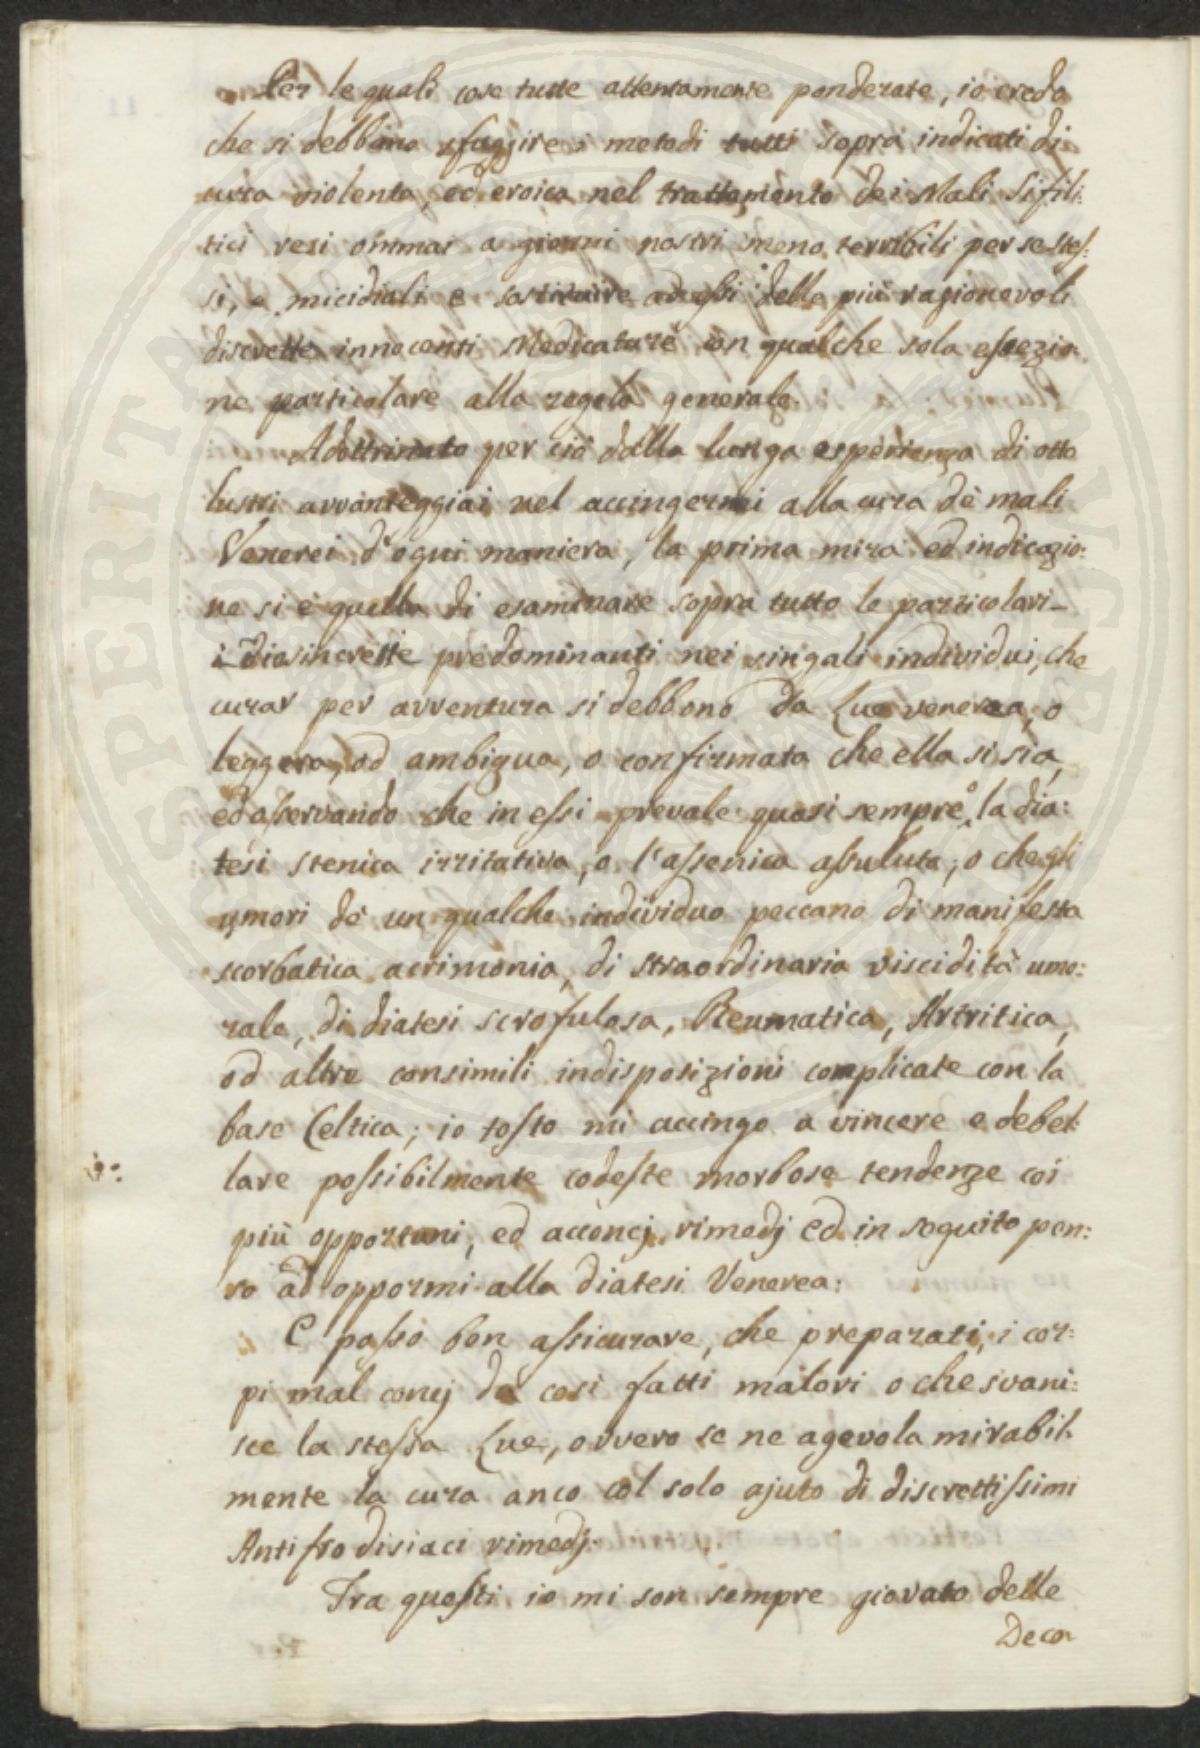 Per le quali cose tutte attentamente ponderate, io credo
che si debbino sfuggire i metodi tutti sopra indicati di
cura violenta, ed eroica nel trattamento dei Mali Sifili:
tici resi ommai a giorni nostri meno terribili per se stes:
si, e micidiali e sostituire ad essi delle più ragionevoli
discrette innocenti Medicature con qualche sola essezio:
ne particolare alla regola generale.
Adottrinato per ciò dalla lunga esperienza di otto
lustri avvanteggiai nel accingermi alla cura de mali
Venerei d'ogni maniera, la prima mira ed indicazio:
ne si è quella di esaminare sopra tutto le particolari
idiosincresie predominanti nei singali individui, che
curar per avventura si debbono da Lue venerea, o
leggera, od ambigua, o confirmata che ella si sia,
ed asservando che in essi prevale quasi sempre o la dia:
tesi stenica irritativa, o l'assenica assuluta, o che gli
umori de un qualche individuo peccano di manifesta
scorbatica acrimonia, di straordinaria viscidità umo:
rale, di diatesi scrofulosa, Reumatica, Artritica,
od altre consimili indisposizioni complicate con la
base Celtica; io tosto mi accingo a vincere e debel:
lare possibilmente codeste morbose tendenze coi
più opportuni, ed acconcj rimedj ed in seguito pen:
so ad oppormi alla diatesi Venerea:
E posso ben assicurare, che preparati i cor:
pi mal concj da così fatti malori o che svani:
sce la stessa Lue, ovvero se ne agevola mirabil:
mente la cura anco col solo ajuto di discrettissimi
Antifrodisiaci rimedj.
Tra questi io mi son sempre giovato delle
Deco
SPERITAT